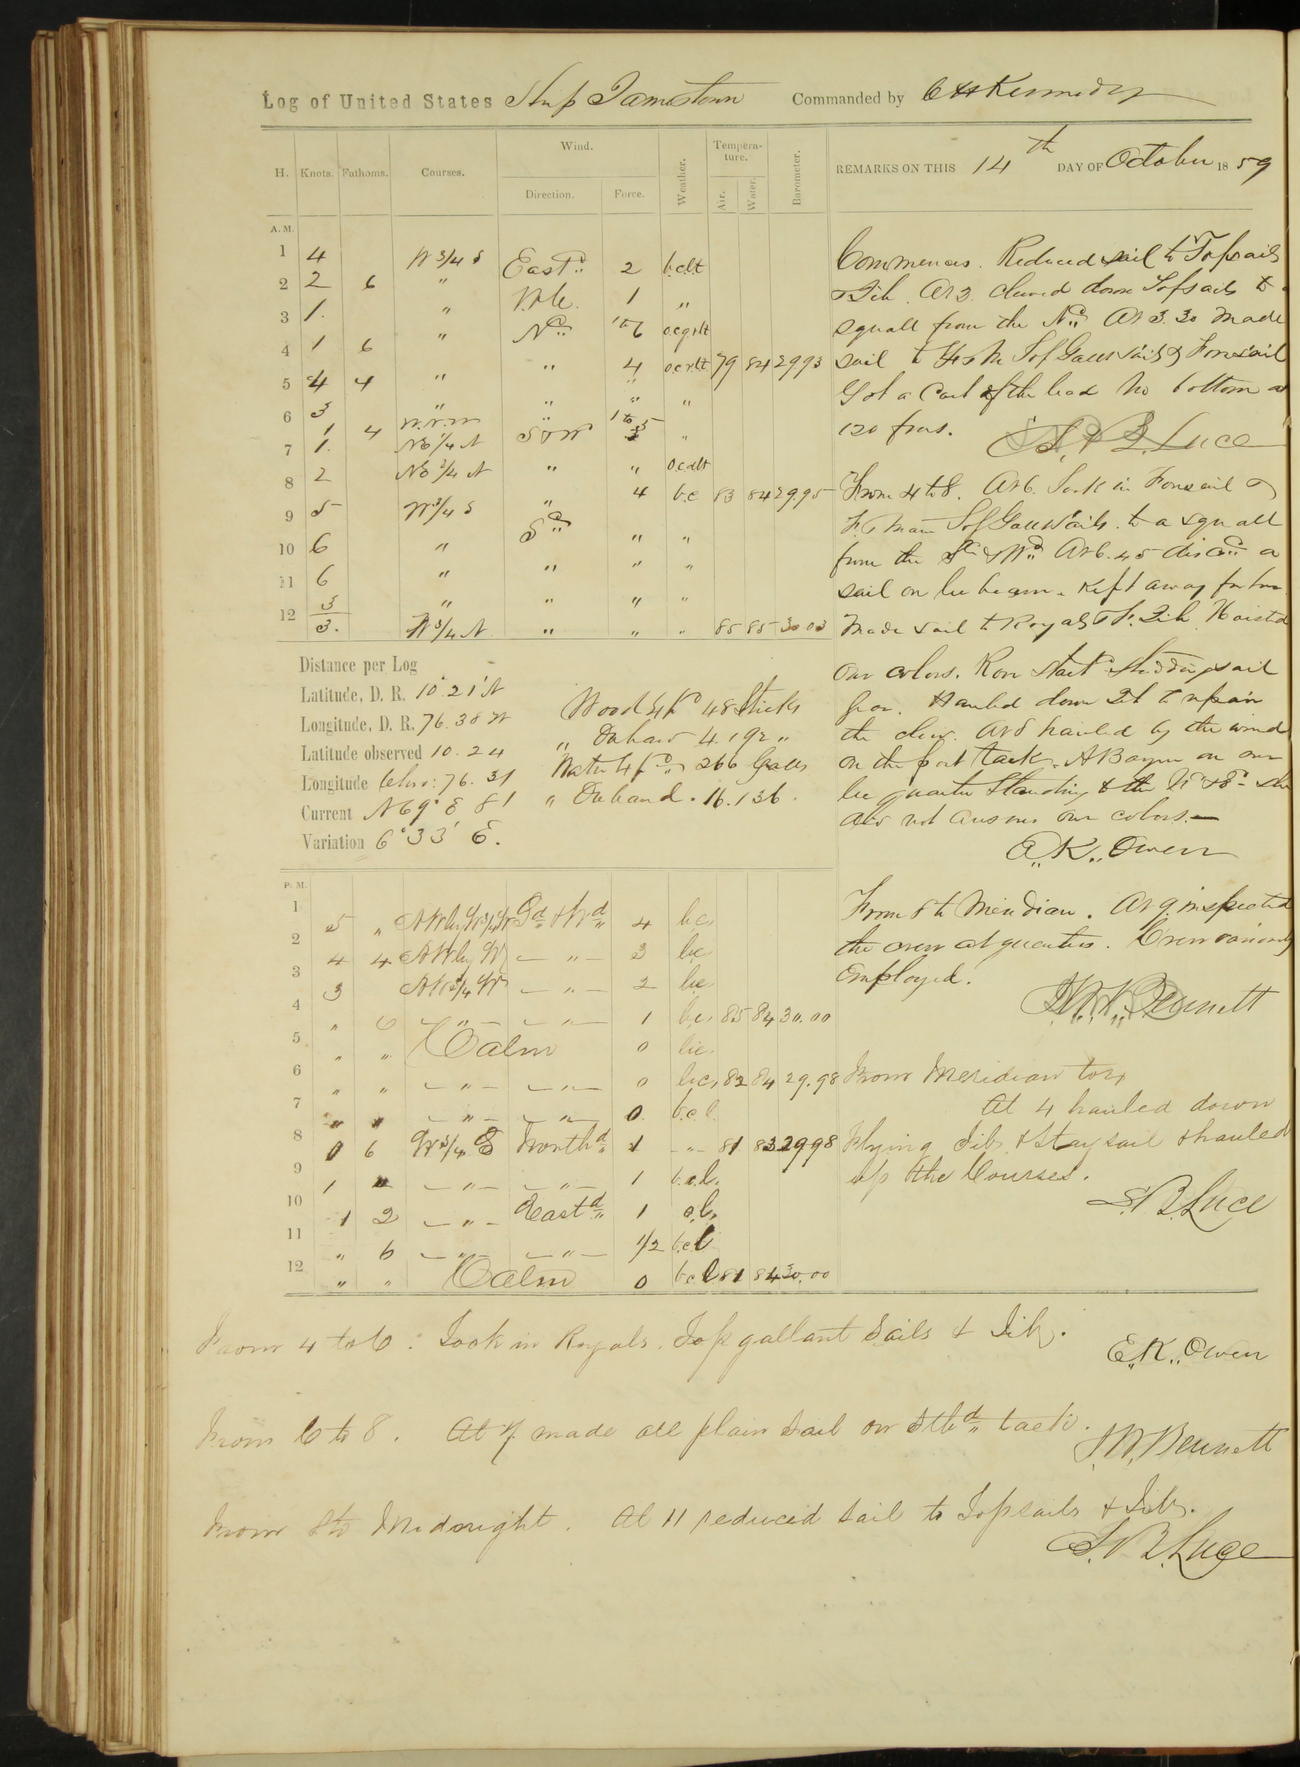 Log of United States Ship Jamestown Commanded by C H Kennedy
H. Knots. Fathoms. Courses. Wind. Direction. Force. Weather. Tempera-ture. Air. Water. Barometer.
REMARKS ON THIS 14th DAY OF October 1859
A. M.
1 4 W 3/4 S East.d 2 bclt
2 2 6 " N.E. 1 "
3 1. " N.d 1 to 6 ocqrlt
4 1 6 " " 4 ocrlt 79 84 2993
5 4 4 " " " "
6 3 " " "
7 1. 4 SoW "
8 2 " " ocdlt
9 5 W 3/4 S " 4 bc 83 84 29.95
10 6 " S.d " "
11 6 " " " "
12 3 " " " "
3. W 3/4 N " " " 85 85 30 03
Commences. Reduced sail to Topsails
& Jib. At 3. clewed down Topsails to a
squall from the N.d At 3.30 made
sail to F & M Top Gall Sails & Foresail
Got a Cast of the lead No bottom at
120 fms.
S. B. Luce
From 4 to 8. At 6. Took in Foresail &
F. & Main Top Gall Sails. to a squall
from the S.d & W.d At 6.45 disc.d a
sail on lee beam. Kept away for her
Made sail to Royals & F. Jib. Hoisted
our colors. Rove studdingsail
gear. Hauled down Jib to repair
the clew. At 8 hauled by the wind
on the port tack. A Barque on our
lee quarter Standing to the N.d & E.d she
did not answer our colors.
E. K. Owen
Distance per Log
Latitude, D. R. 10° 21' N
Longitude, D. R. 76. 38 W
Latitude observed 10. 24
Longitude Chro: 76. 31
Current N 69° E 81
Variation 6° 33' E.
Wood 48 Sticks
" On hand 4.192 "
Water 266 Galls
" On hand. 16.136.
P. M.
1 5 " 4 bc
2 4 4 " 3 bc
3 3 " 2 bc
4 " 6 " " 1 bc 85 84 30.00
5 " " Calm 0 bc
6 " " " " 0 bc 82 84 29.98
7 " " " " 0. b.c.l.
8 1 6 W 3/4 S North.d 1 " 81 83 2998
9 1 " " " 1 b.c.l.
10 1 2 " East.d 1 c.l.
11 " 6 " " 1/2 b.c.l
12 " " Calm 0 b.c.l 81 84 30.00
From 8 to Meridian. At 9. inspected
the crew at quarters. Crew variously
Employed.
J. W. Bennett
From Meridian to 4
At 4 hauled down
Flying Jib & Staysail & hauled
up the Courses.
S. B. Luce
From 4 to 6: Took in Royals, Top gallant Sails & Jib.
E. K. Owen
From 6 to 8. At 7 made all plain sail on Stb.d tack.
J. W. Bennett
From 8 to Midnight. At 11 reduced sail to Topsails & Jib.
S. B. Luce